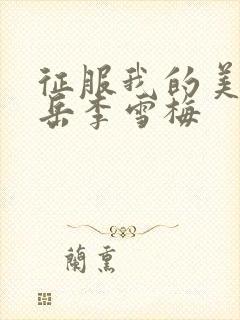 征服我的美
岳李雪梅
蘭熏